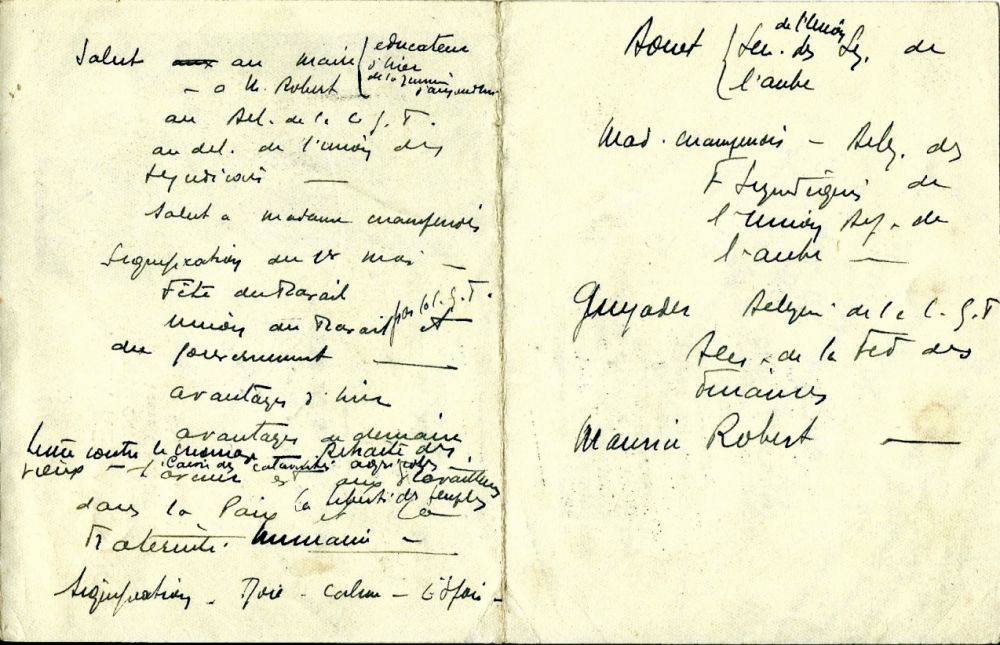 Salut au maire { educateur
d'hier
de la jeunesse
d'aujourd'hui
- a M. Robert
au Del. de la C.G.T.
au del. de l'Union des
Syndicats —
Salut a madame champenois
Signification du 1er mai —
Fête du Travail
Union du Travail par la C.G.T. et
du gouvernement —
avantages d'hier
avantages de demain
Lutte contre le chomage — Retraite des
vieux — Caisse des agricoles —
L'avenir est aux travailleurs
dans la Paix et la liberté des peuples la
Fraternité humaine —
Signification - Joie - calme -
{ Sec. des Sy. de
de l'Union
l'aube
Mad. champenois - Deleg. des
F Syndiquées de
l'Union Dep. de
l'aube —
Guyader Delegué de la C.G.T
de la Fed des
Finances
Maurice Robert —